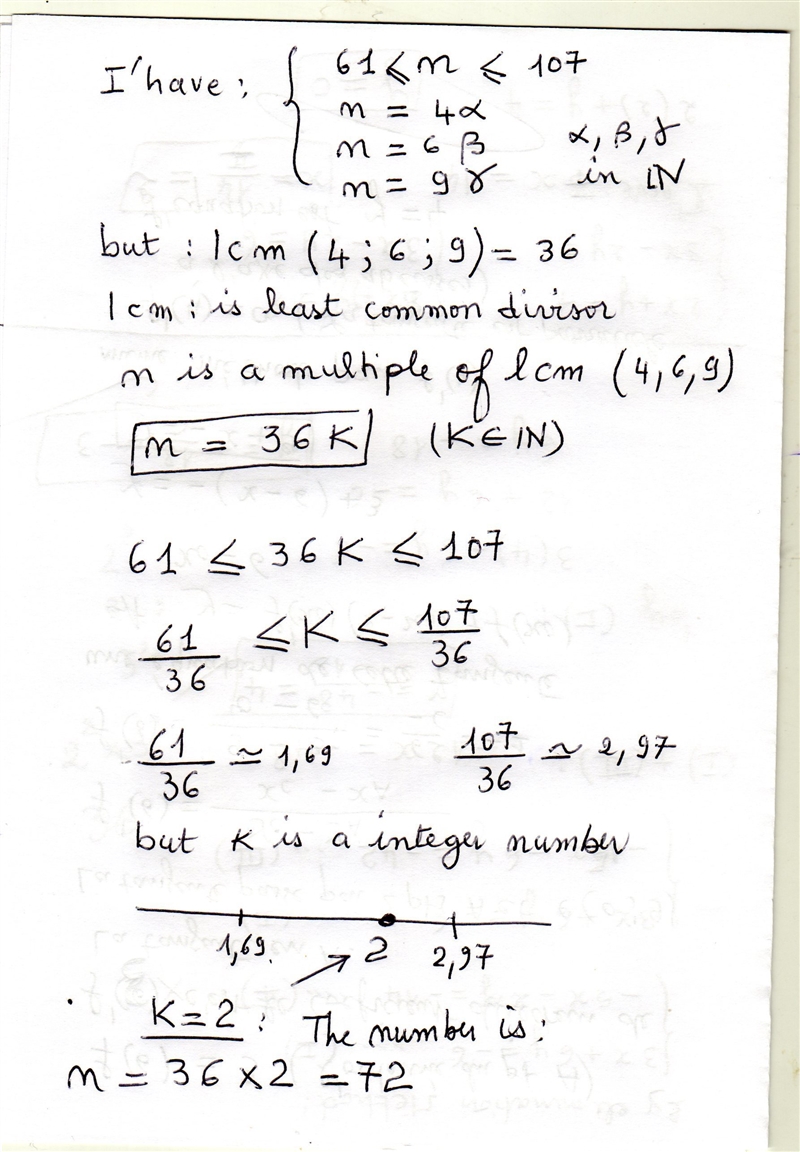 I'have : { 61 ⩽ n ⩽ 107
n = 4α
n = 6 β α, β, γ
n = 9 γ in IN
but : lcm (4 ; 6 ; 9) = 36
lcm : is least common divisor
n is a multiple of lcm (4,6,9)
n = 36 K (K ∈ IN)
61 ⩽ 36 K ⩽ 107
61/36 ⩽ K ⩽ 107/36
61/36 ≃ 1,69 107/36 ≃ 2,97
but K is a integer number
1,69 2 2,97
K = 2 : The number is :
n = 36 × 2 = 72